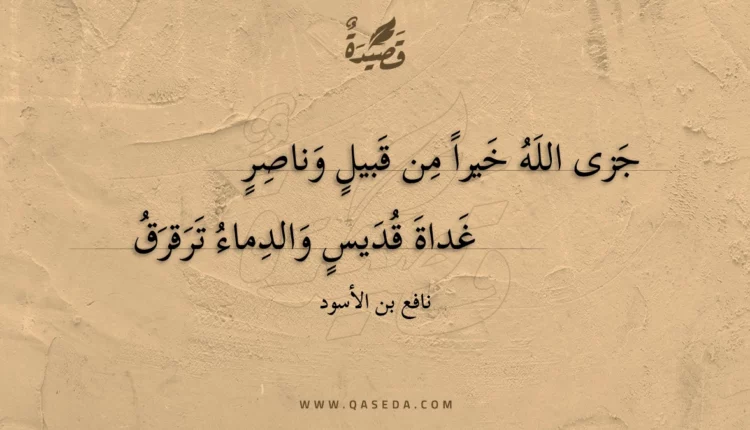 قَصِيدَةٌ
جَزى اللَهُ خَيراً مِن قَبيلٍ وَناصِرٍ
غَداةَ قُدَيسٍ وَالدِماءُ تَرَقرَقُ
نافع بن الأسود
WWW.QASEDA.COM